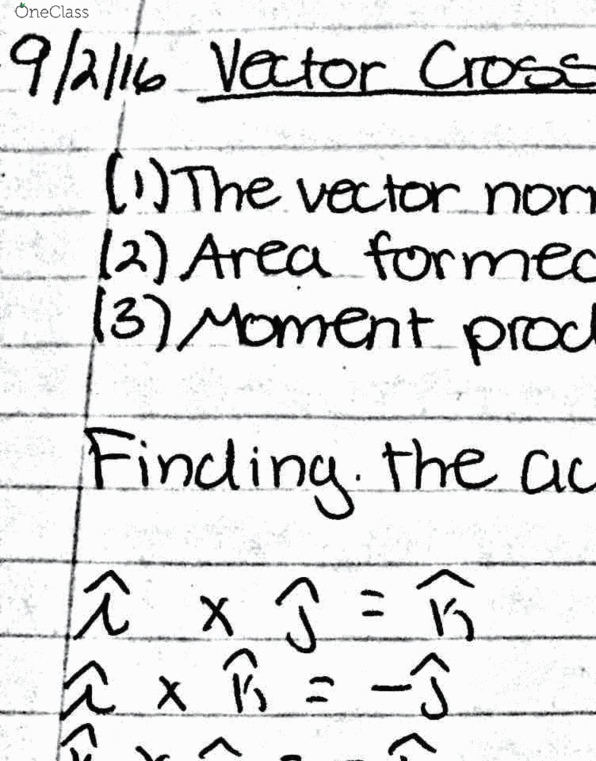 OneClass
9/2/16 Vector Cross
(1) The vector nor
(2) Area formed
(3) Moment prod
Finding the ac
î x ĵ = k̂
î x k̂ = -ĵ